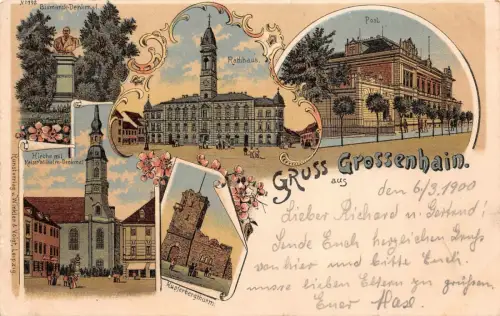 N°1992
Bismarck-Denkmal
Rathhaus.
Post.
Kirche mit
Kaiser Wilhelm-Denkmal
Kupferbergthurm.
GRUSS aus Grossenhain.
den 6/3. 1900
Lieber Richard u. Gertrud!
Sende Euch herzlichen Gruß
von hier und bitte Euch
unsre lieben Eltern zu grüßen
Euer Max.
Leipzig.